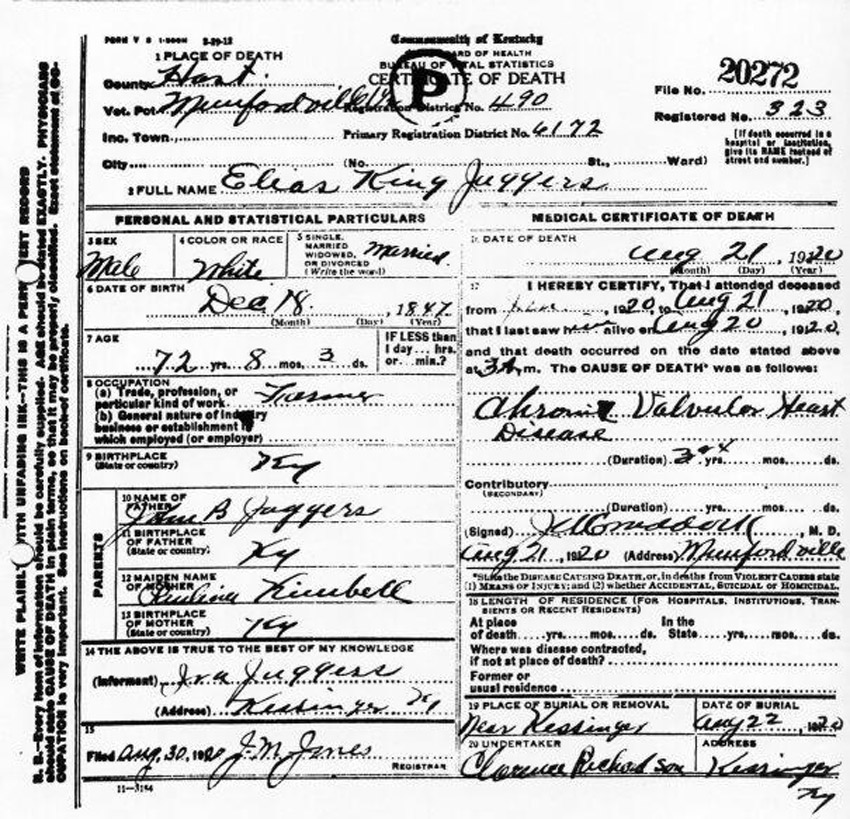 FORM V S 1-500M 3-29-12
Commonwealth of Kentucky
BOARD OF HEALTH
BUREAU OF VITAL STATISTICS
CERTIFICATE OF DEATH
P
1 PLACE OF DEATH
County Hart
Vot. Pct. Munfordville
Inc. Town
City (No. St., Ward)
Registration District No. 490
Primary Registration District No. 6172
File No. 20272
Registered No. 323
[If death occurred in a
hospital or institution,
give its NAME instead of
street and number.]
2 FULL NAME Elias King Jaggers
PERSONAL AND STATISTICAL PARTICULARS
3 SEX
Male
4 COLOR OR RACE
White
5 SINGLE,
MARRIED
WIDOWED,
OR DIVORCED
(Write the word)
Married
6 DATE OF BIRTH
Dec 18, 1847
(Month) (Day) (Year)
7 AGE
72 yrs. 8 mos. 3 ds.
IF LESS than
1 day... hrs.
or... min.?
8 OCCUPATION
(a) Trade, profession, or
particular kind of work Farmer
(b) General nature of industry
business or establishment in
which employed (or employer)
9 BIRTHPLACE
(State or country) Ky
PARENTS
10 NAME OF
FATHER
John B Jaggers
11 BIRTHPLACE
OF FATHER
(State or country) Ky
12 MAIDEN NAME
OF MOTHER
Kimbell
13 BIRTHPLACE
OF MOTHER
(State or country) Ky
14 THE ABOVE IS TRUE TO THE BEST OF MY KNOWLEDGE
(Informant) Ira Jaggers
(Address) Kessinger Ky
15
Filed Aug, 30, 1920 J. M. Jones
REGISTRAR
11-3184
MEDICAL CERTIFICATE OF DEATH
DATE OF DEATH
Aug 21, 1920
(Month) (Day) (Year)
17 I HEREBY CERTIFY, That I attended deceased
from 1920, to Aug 21, 1920,
that I last saw him alive on Aug 20, 1920,
and that death occurred on the date stated above
at 3 A. m. The CAUSE OF DEATH* was as follows:
Chronic Valvular Heart
Disease
(Duration) yrs. mos. ds.
Contributory
(SECONDARY)
(Duration) yrs. mos. ds.
(Signed) M. D.
Aug 21, 1920 (Address) Munfordville
*State the DISEASE CAUSING DEATH, or, in deaths from VIOLENT CAUSES state
(1) MEANS OF INJURY; and (2) whether ACCIDENTAL, SUICIDAL or HOMICIDAL.
18 LENGTH OF RESIDENCE (FOR HOSPITALS, INSTITUTIONS, TRAN-
SIENTS OR RECENT RESIDENTS)
At place
of death yrs. mos. ds.
In the
State yrs. mos. ds.
Where was disease contracted,
if not at place of death?
Former or
usual residence
19 PLACE OF BURIAL OR REMOVAL
Near Kessinger
DATE OF BURIAL
Aug 22, 1920
20 UNDERTAKER
Clarence Richardson
ADDRESS
Kessinger
Ky
WRITE PLAINLY WITH UNFADING INK—THIS IS A PERMANENT RECORD
N. B.—Every item of information should be carefully supplied. AGE should be stated EXACTLY. PHYSICIANS
should state CAUSE OF DEATH in plain terms, so that it may be properly classified. Exact statement of OC-
CUPATION is very important. See instructions on back of certificate.